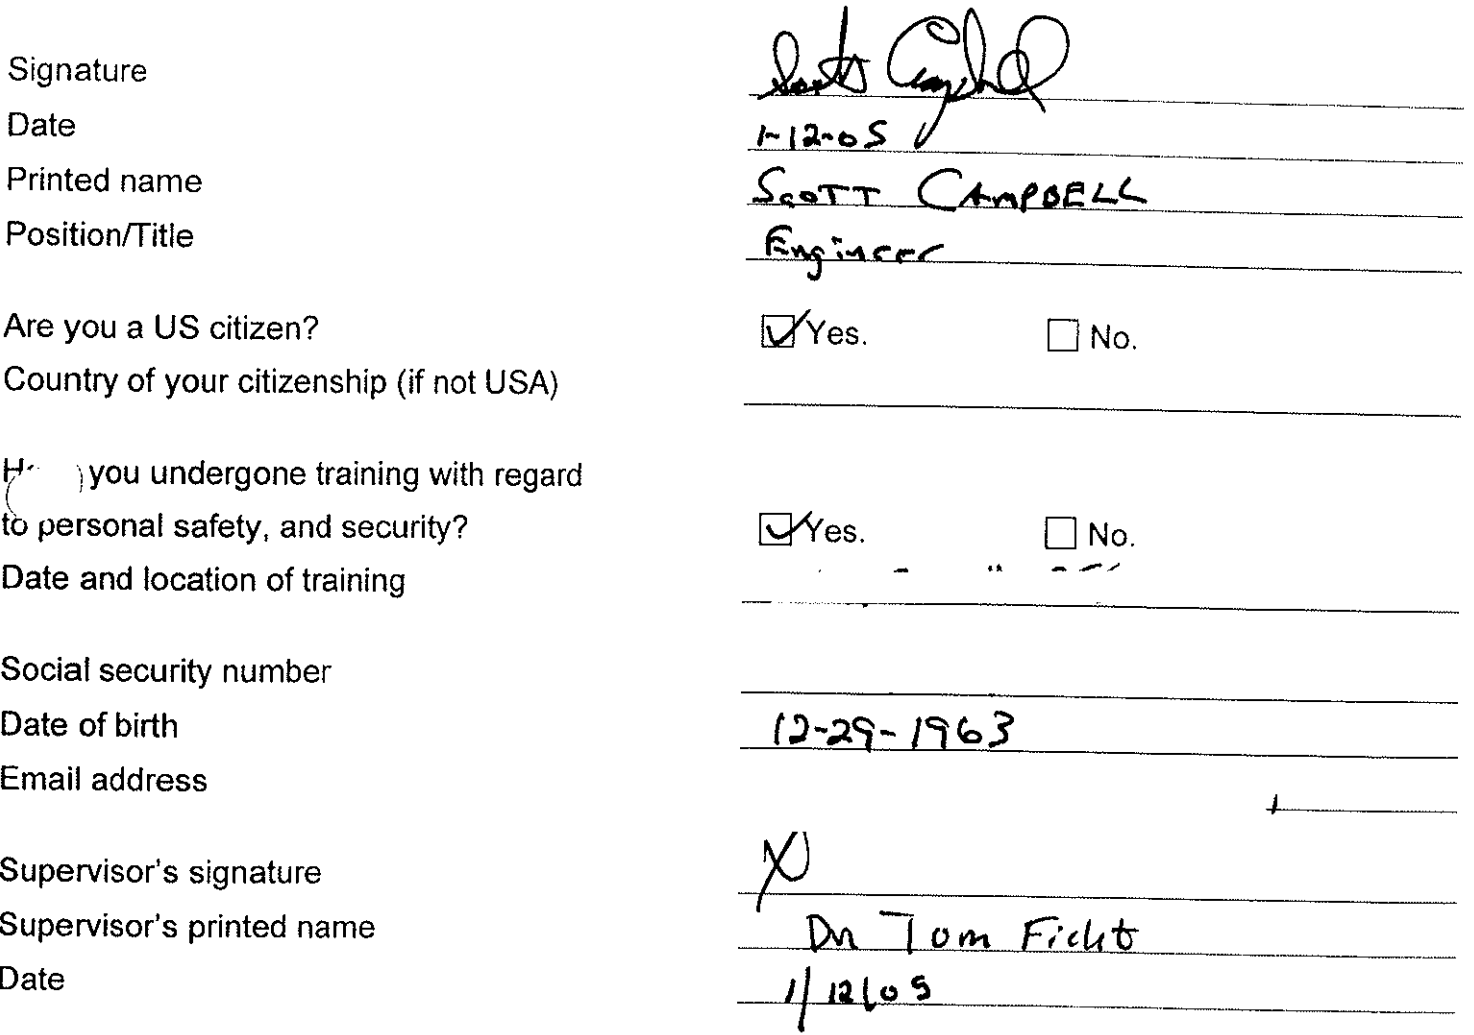 Signature Scott Campbell
Date 1-12-05
Printed name SCOTT CAMPBELL
Position/Title Engineer
Are you a US citizen? Yes. No.
Country of your citizenship (if not USA)
you undergone training with regard
to personal safety, and security? Yes. No.
Date and location of training
Social security number
Date of birth 12-29-1963
Email address
Supervisor's signature
Supervisor's printed name Dr Tom Ficht
Date 1/12/05